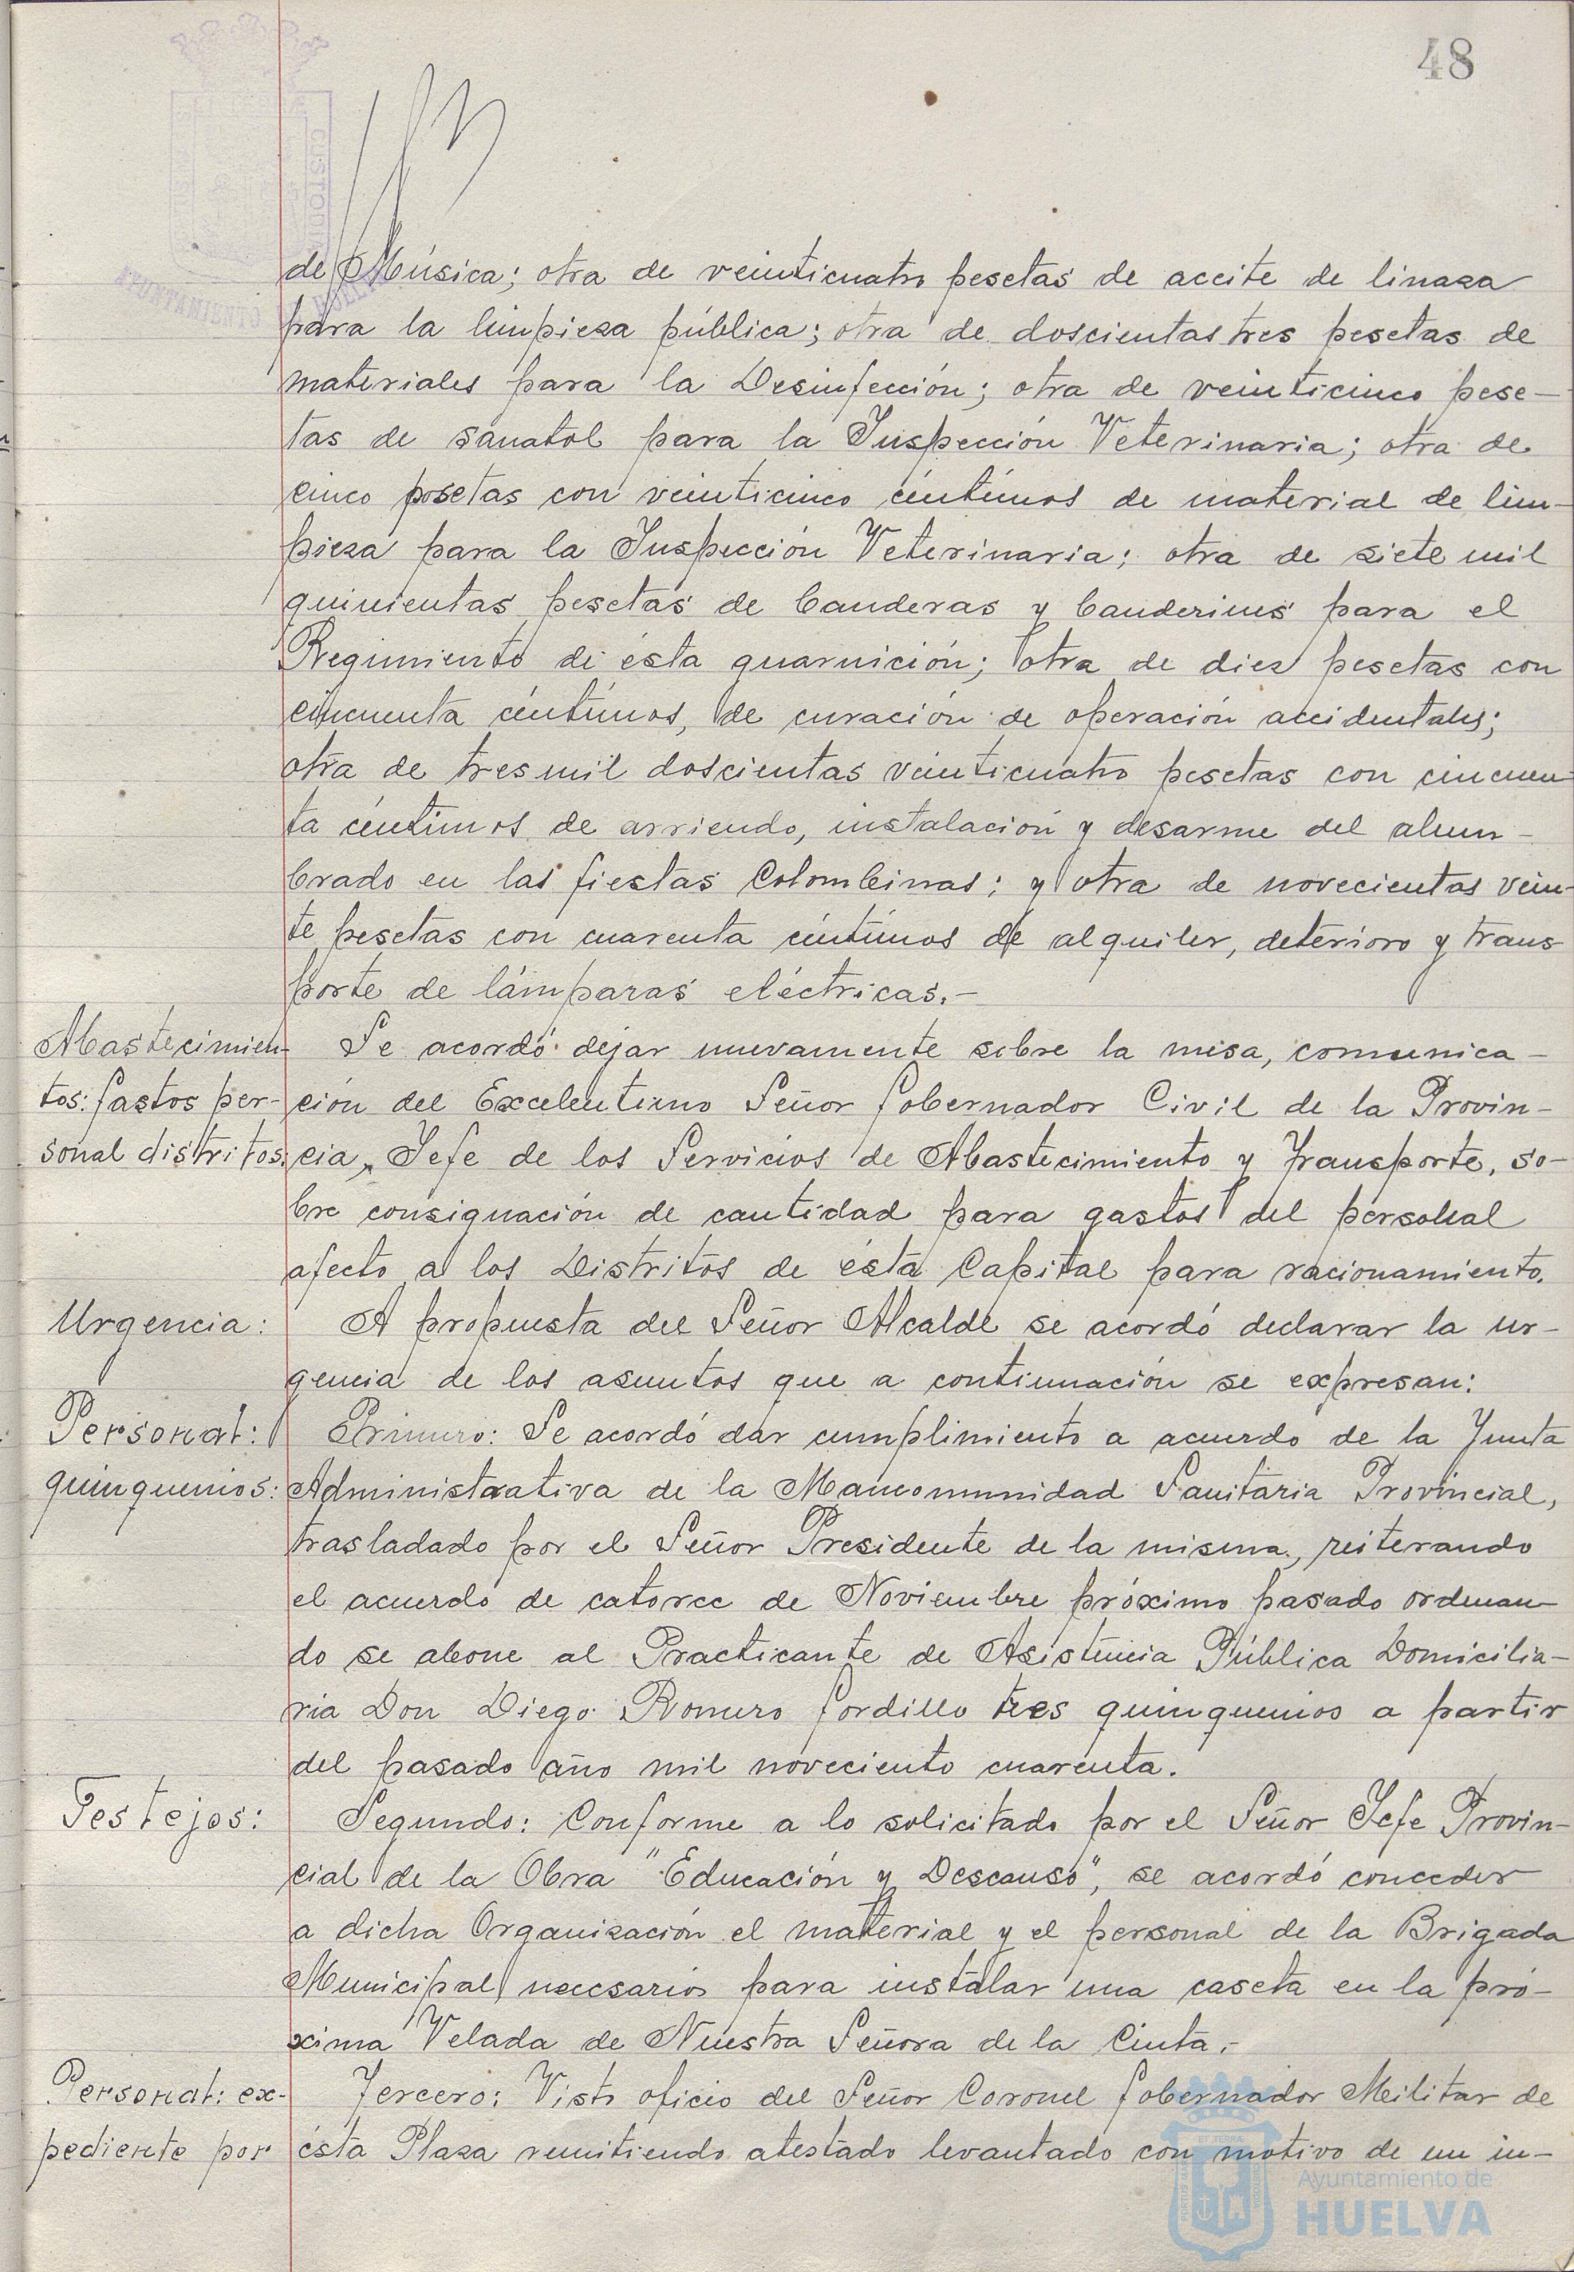 48
de Música; otra de veinticuatro pesetas de aceite de linaza
para la limpieza pública; otra de doscientas tres pesetas de
materiales para la Desinfección; otra de veinticinco pese-
tas de sanatol para la Inspección Veterinaria; otra de
cinco pesetas con veinticinco céntimos de material de lim-
pieza para la Inspección Veterinaria; otra de siete mil
quinientas pesetas de banderas y banderines para el
Regimiento de ésta guarnición; otra de diez pesetas con
cincuenta céntimos, de curación de operación accidentales;
otra de tres mil doscientas veinticuatro pesetas con cincuen-
ta céntimos de arriendo, instalación y desarme del alum-
brado en las fiestas Colombinas; y otra de novecientas vein-
te pesetas con cuarenta céntimos de alquiler, deterioro y trans-
porte de lámparas eléctricas.-
Abastecimien-
tos: Gastos per-
sonal distritos.
Se acordó dejar nuevamente sobre la mesa, comunica-
ción del Excelentismo Señor Gobernador Civil de la Provin-
cia, Jefe de los Servicios de Abastecimiento y Transporte, so-
bre consignación de cantidad para gastos del personal
afecto a los Distritos de ésta Capital para racionamiento.
Urgencia:
A propuesta del Señor Alcalde se acordó declarar la ur-
gencia de los asuntos que a continuación se expresan:
Personal:
quinquenios:
Primero: Se acordó dar cumplimiento a acuerdo de la Junta
Administrativa de la Mancomunidad Sanitaria Provincial,
trasladado por el Señor Presidente de la misma, reiterando
el acuerdo de catorce de Noviembre próximo pasado ordenan-
do se abone al Practicante de Asistencia Pública Domicilia-
ria Don Diego Romero Gordillo tres quinquenios a partir
del pasado año mil noveciento cuarenta.
Festejos:
Segundo: Conforme a lo solicitado por el Señor Jefe Provin-
cial de la Obra "Educación y Descanso", se acordó conceder
a dicha Organización el material y el personal de la Brigada
Municipal necesarios para instalar una caseta en la pró-
xima Velada de Nuestra Señora de la Cinta.-
Personal: ex-
pediente por
Tercero: Visto oficio del Señor Coronel Gobernador Militar de
ésta Plaza remitiendo atestado levantado con motivo de un in-
Ayuntamiento de
HUELVA